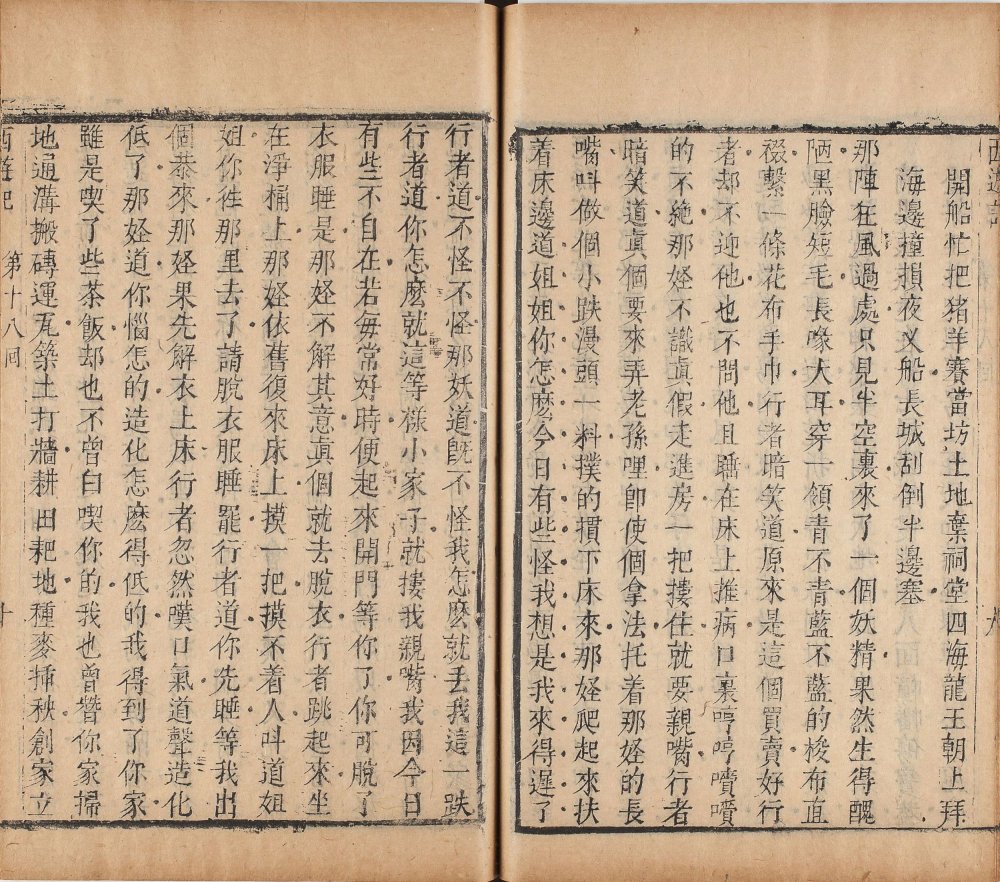 開船忙把猪羊賽當坊土地棄祠堂四海龍王朝上拜
海邊撞損夜叉船長城刮倒半邊塞
那陣狂風過處只見半空裏來了一個妖精果然生得醜
陋黑臉短毛長喙大耳穿一領青不青藍不藍的梭布直
裰繫一條花布手巾行者暗笑道原來是這個買賣好行
者却不迎他也不問他且睡在床上推病口裏哼哼嘖嘖
的不絶那妖不識真假走進房一把摟住就要親嘴行者
暗笑道真個要來弄老孫哩即使個拿法托着那妖的長
嘴叫做個小跌漫頭一料撲的摜下床來那妖爬起來扶
着床邊道姐姐你怎麼今日有些怪我想是我來得遲了
行者道不怪不怪那妖道既不怪我怎麼就丢我這一跌
行者道你怎麼就這等樣小家子就摟我親嘴我因今日
有些不自在若每常好時便起來開門等你了你可脫了
衣服睡是那妖不解其意真個就去脫衣行者跳起來坐
在淨桶上那妖依舊復來床上摸一把摸不着人叫道姐
姐你徃那里去了請脫衣服睡罷行者道你先睡等我出
個恭來那妖果先解衣上床行者忽然嘆口氣道聲造化
低了那妖道你惱怎的造化怎麼得低的我得到了你家
雖是喫了些茶飯却也不曾白喫你的我也曾替你家掃
地通溝搬磚運瓦築土打墻耕田耙地種麥揷秧創家立
西遊記 第十八囘 十